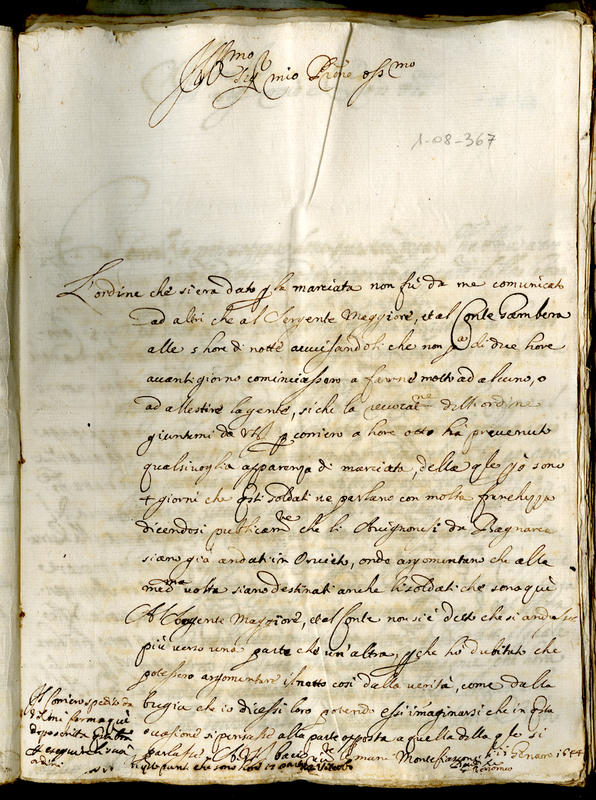 Ill.mo Sig.r mio P.rone oss.mo
1-08-367
L'ordine che si era dato p la marciata non fù da me comunicato
ad altri che al Sergente Maggiore, et al Conte Gambera
alle 5 hore di notte avvisandoli che non p.a di due hore
avanti giorno cominciassero a farne motto ad alcuno, o
ad allestire la gente, si che la revocat.ne dell'ordine
giuntami da VS p corriero a hore otto hà prevenuto
qualsivoglia apparenza di marciata, della q.le però sono
4 giorni che q.sti soldati ne parlano con molta franchezza
dicendosi publicam.te che li Avignonesi da Bagnarea
siano già andati in Orvieto, onde argomentano che alla
med.ma volta siano destinati anche li soldati che sono quì
Al Sergente Maggiore, et al Conte non si è detto che si andasse
più verso una parte che un'altra, p che hò dubitato che
potessero argomentare il netto così dalla verità, come dalla
bugia che io dicessi loro potendo essi imaginarsi che in q.sta
occasione si pensasse alla parte opposta a quella della q.le si
parlasse A VS bacio
Montefiascone li 11 Genaro 1644
Il corriero spedito da
ferma quì